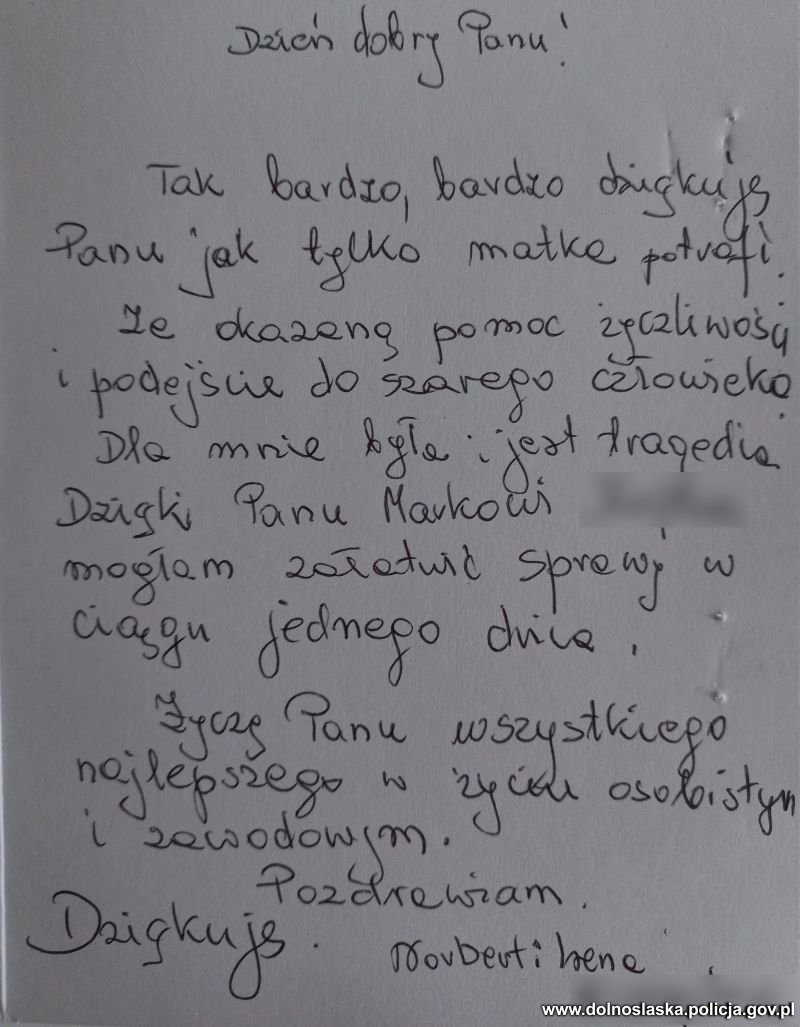 Dzień dobry Panu!
Tak bardzo, bardzo dziękuję
Panu jak tylko matka potrafi.
Ze okazaną pomoc życzliwością
i podejście do szarego człowieka
Dla mnie była i jest tragedia
Dzięki Panu Markowi
mogłam załatwić sprawę w
ciągu jednego dnia.
Życzę Panu wszystkiego
najlepszego w życiu osobistym
i zawodowym.
Pozdrawiam.
Dziękuję. Norbert i Irena
www.dolnoslaska.policja.gov.pl